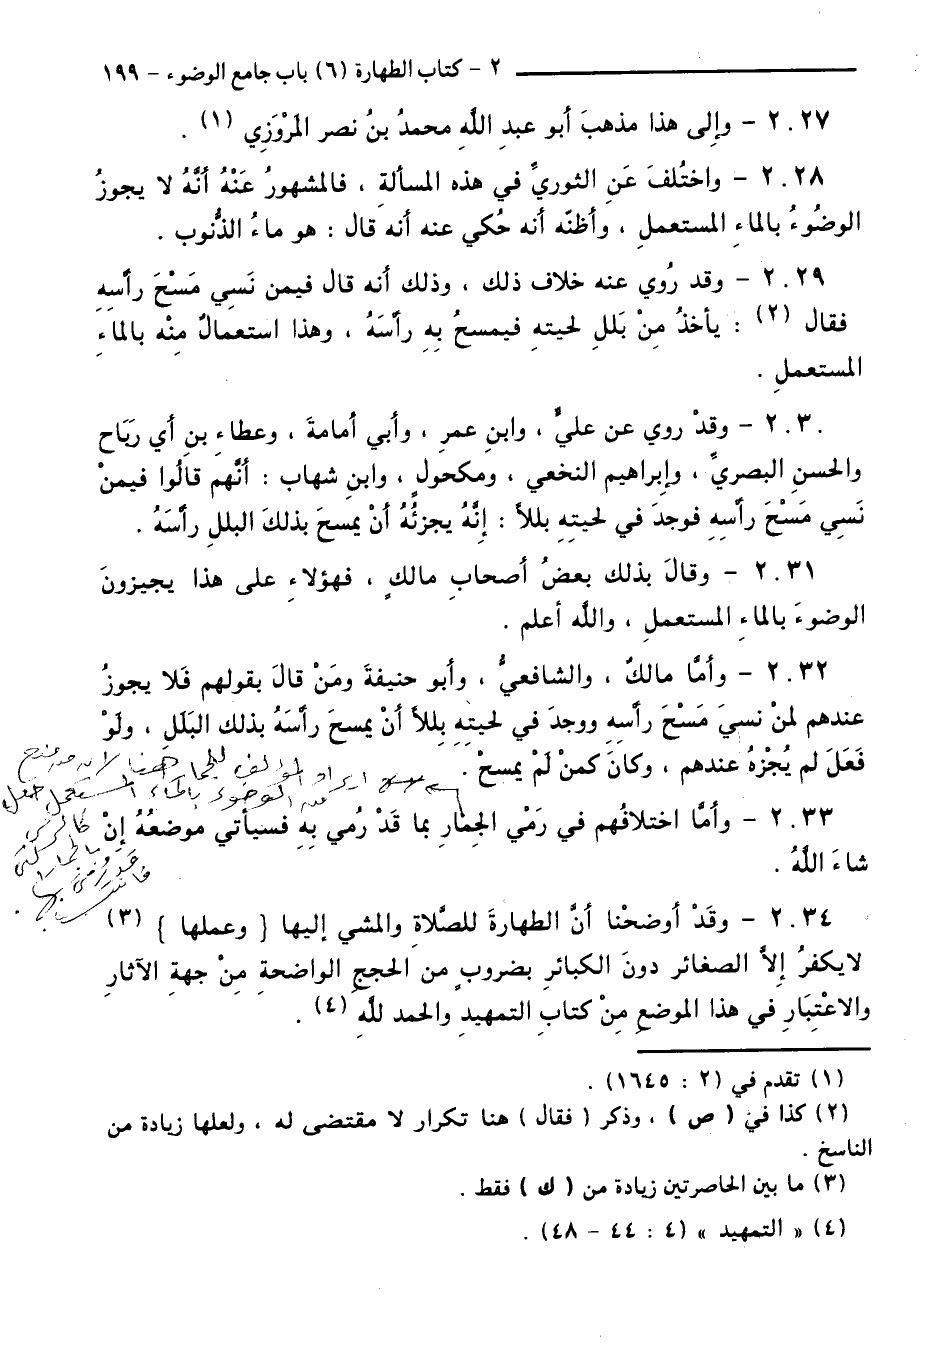 ٢ - كتاب الطهارة (٦) باب جامع الوضوء - ١٩٩
٢٠٢٧ - وإلى هذا مذهبَ أبو عبدِ اللَّهِ محمدُ بنُ نصر المَرْوَزِي (١) .
٢٠٢٨ - واختُلفَ عَنِ الثوريِّ في هذه المسألةِ ، فالمشهورُ عَنْهُ أنَّهُ لا يجوزُ
الوضُوءُ بالماءِ المستعملِ ، وأظنّه أنه حُكي عنه أنه قال : هو ماءُ الذُّنوب .
٢٠٢٩ - وقد رُوي عنه خلاف ذلك ، وذلك أنه قال فيمن نَسِي مَسْحَ رأسِهِ
فقال (٢) : يأخذُ مِنْ بَللِ لحيتهِ فيمسحُ بِهِ رأسَهُ ، وهذا استعمالٌ مِنْه بالماءِ
المستعملِ .
٢٠٣٠ - وقدْ روي عن عليٍّ ، وابنِ عمرِ ، وأبي أمامةَ ، وعطاءِ بنِ أي رَبَاح
والحسنِ البصريِّ ، وإبراهيم النخعي ، ومكحولٍ ، وابنِ شهاب : أنَّهم قالُوا فيمنْ
نَسِي مَسْحَ رأسِهِ فوجدَ في لحيتِهِ بللاً : إنَّهُ يجزئُهُ أنْ يمسحَ بذلكَ البللِ رأسَهُ .
٢٠٣١ - وقالَ بذلك بعضُ أصحابِ مالكٍ ، فهؤلاءِ على هذا يجيزونَ
الوضوءَ بالماءِ المستعملِ ، واللَّه أعلم .
٢٠٣٢ - وأمَّا مالكٌ ، والشافعيُّ ، وأبو حنيفةَ ومَنْ قالَ بقولهم فَلا يجوزُ
عندهم لمنْ نسيَ مَسْحَ رأسِهِ ووجدَ في لحيتِهِ بللاً أنْ يمسحَ رأسَهُ بذلك البَلَلِ ، ولَوْ
فَعَلَ لم يُجْزهُ عندهم ، وكانَ كمنْ لَمْ يمسحْ .
٢٠٣٣ - وأمَّا اختلافُهم في رَمْيِ الجمارِ بما قَدْ رُمي بِهِ فسيأتي موضعُهُ إنْ
شاءَ اللَّهُ .
٢٠٣٤ - وقَدْ أوضحْنا أنَّ الطهارةَ للصَّلاةِ والمشي إليها { وعملها } (٣)
لايكفرُ إلاَّ الصغائر دونَ الكبائرِ بضروبٍ من الحججِ الواضحةِ مِنْ جهةِ الآثارِ
والاعْتِبَارِ في هذا الموضعِ مِنْ كتابِ التمهيدِ والحمد للَّهِ (٤) .
(١) تقدم في (٢ : ١٦٤٥) .
(٢) كذا في ( ص ) ، وذكر ( فقال ) هنا تكرار لا مقتضى له ، ولعلها زيادة من
الناسخ .
(٣) ما بين الحاصرتين زيادة من ( ك ) فقط .
(٤) « التمهيد » (٤ : ٤٤ - ٤٨) .